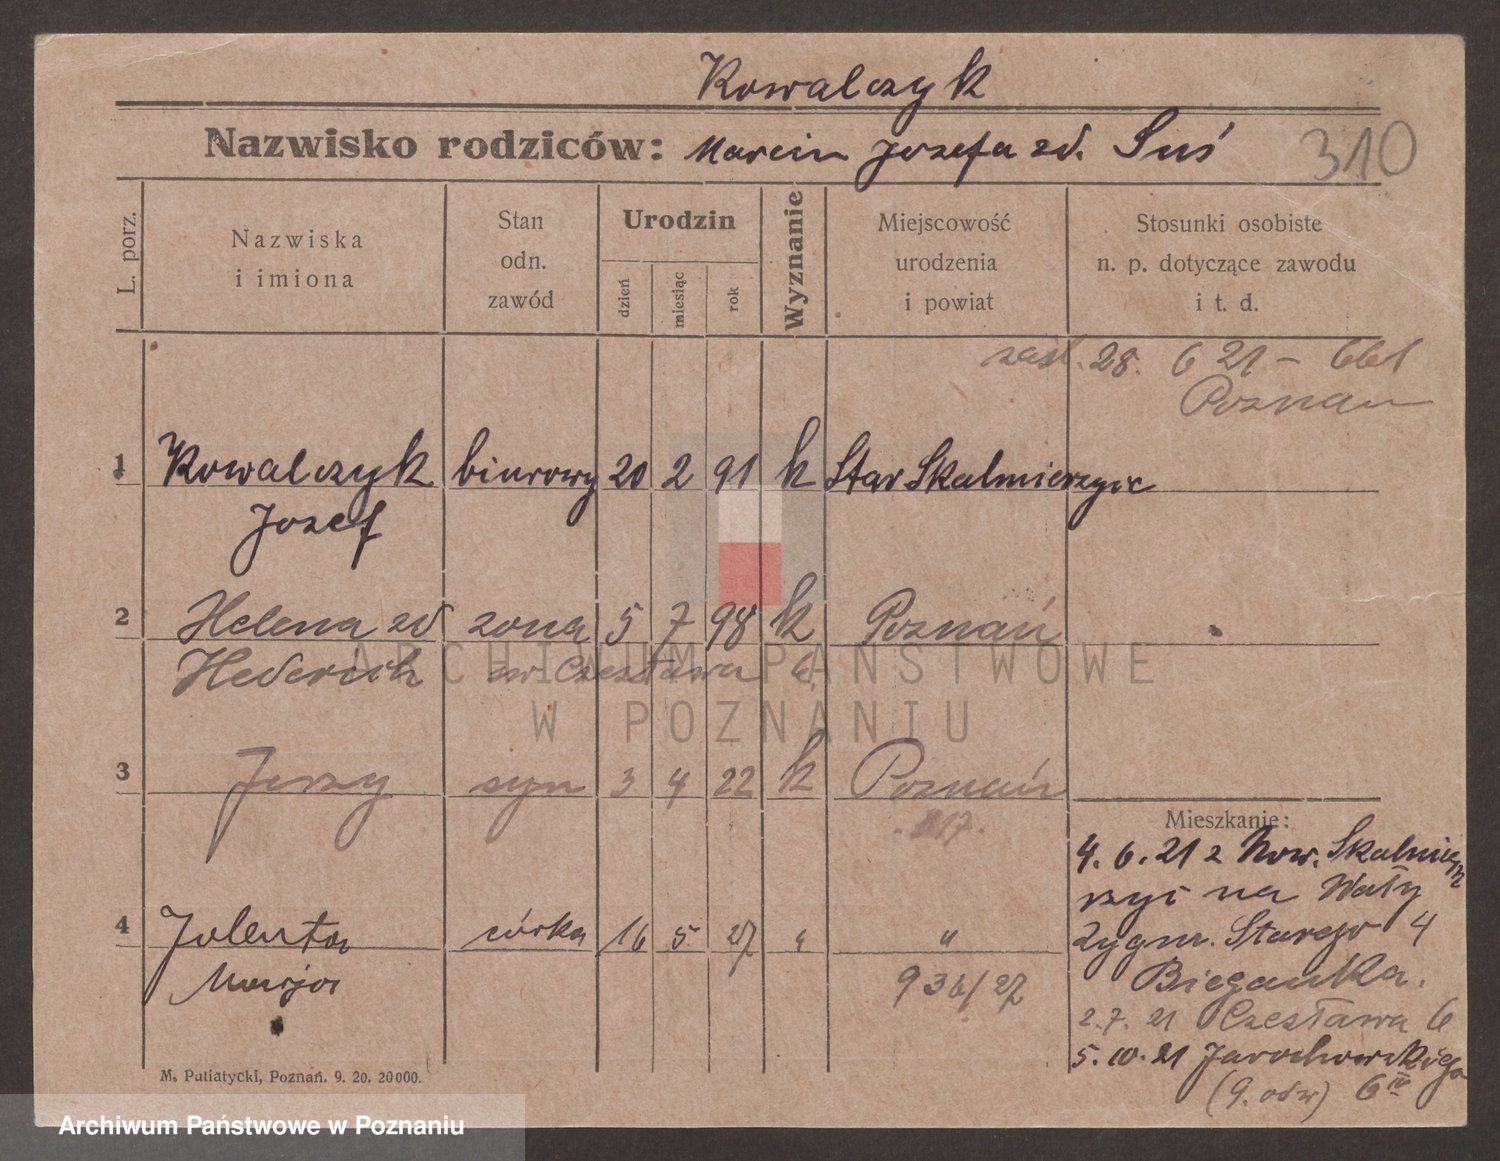 Kowalczyk
Nazwisko rodziców: Marcin Jozefa zd. Suś
310
L. porz.
Nazwiska
i imiona
Stan
odn.
zawód
Urodzin
dzień
miesiąc
rok
Wyznanie
Miejscowość
urodzenia
i powiat
Stosunki osobiste
n. p. dotyczące zawodu
i t. d.
28. 6 21 – 661
Poznan
1 Kowalczyk biurowy 20 2 91 k Star Skalmierzyic
Jozef
2 Helena zd zona 5 7 98 k Poznań
Hederich Czesława 6
ARCHIWUM PAŃSTWOWE
W POZNANIU
3 Jerzy syn 3 4 22 k Poznań
817.
4 Jolenta córka 16 5 27 " "
Marja
936/27
Mieszkanie:
4. 6. 21 z Now. Skalmie
rzyc na Wały
Zygm. Starego 4
Bieganka.
2. 7. 21 Czesława 6
5. 10. 21 Jarochowskiego
6 IV
M. Putiatycki, Poznań. 9. 20. 20000.
Archiwum Państwowe w Poznaniu